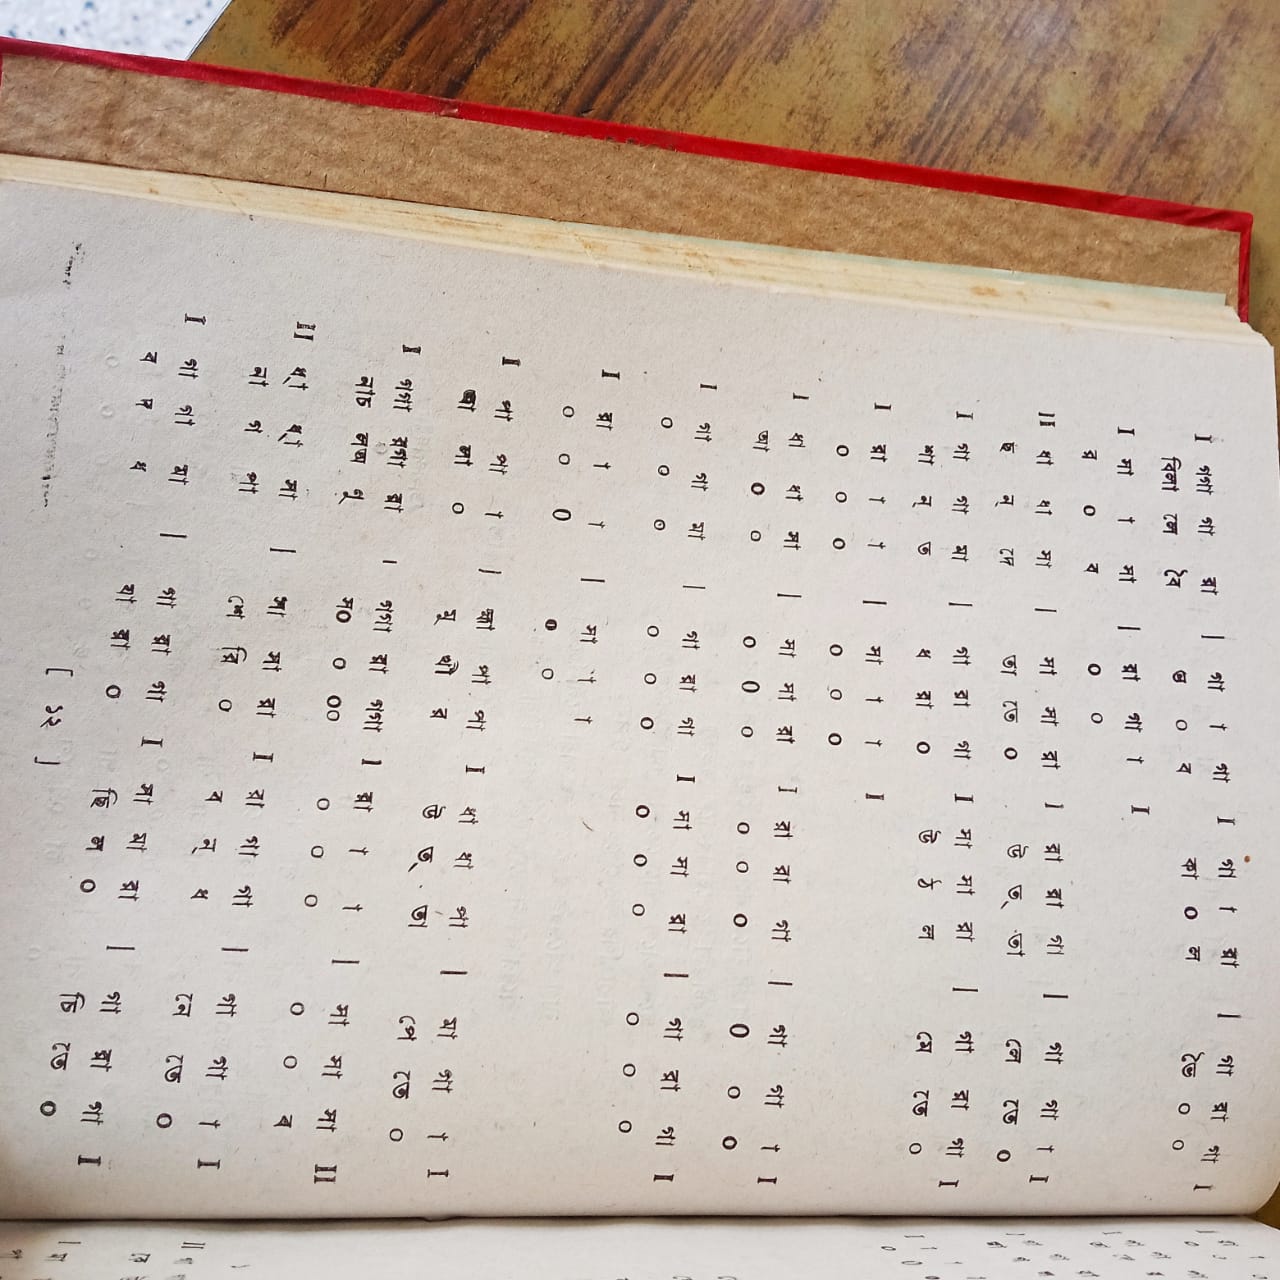 I গগা গা রা | গা া গা I গা া রা | গা রা গা I
বিলা সে বৈ ভ ০ ব কা ০ ল তৈ ০ ০
I সা া সা | রা গা া I
র ০ ব ০ ০
II ধা ধা সা | সা সা রা I রা রা গা | গা গা া I
ছ ন্ দে ভা তে ০ উ ত্ তা লে তে ০
I গা গা মা | গা রা গা I সা সা রা | গা রা গা I
শা ন্ ত ধ রা ০ উ ঠ ল মে তে ০
I রা া া | সা া া I
০ ০ ০ ০ ০ ০
I ধা ধা সা | সা সা রা I রা রা গা | গা গা া I
আ ০ ০ ০ ০ ০ ০ ০ ০ ০ ০ ০
I গা গা মা | গা রা গা I সা সা রা | গা রা গা I
০ ০ ০ ০ ০ ০ ০ ০ ০ ০ ০ ০
I রা া া | সা া া
০ ০ ০ ০ ০
I পা পা া | ক্ষা পা পা I ধা ধা পা | মা গা া I
লা ০ মু খী র উ ত্ তা পে তে ০
I গগা রগা রা | গগা রা গগা I রা া া | সা সা সা II
নাচ লজ ০ ০ ০০ ০ ০ ০ ০ ০ ব
II ধ়া ধ়া সা | সা সা রা I রা গা গা | গা গা া I
না গ পা শে রি ০ ব ন্ ধ নে তে ০
I গা গা মা | গা রা গা I সা সা রা | গা রা গা I
ব দ্ধ যা রা ০ ছি ল ০ চি তে ০
[ ১২ ]